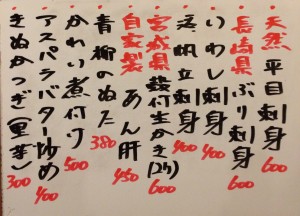 天然 平目刺身 600
長崎県 ぶり刺身 600
活帆立刺身 400
いわし刺身 400
宮城県 殻付生かき(2ケ) 600
自家製 あん肝 450
青柳のぬた 380
かれい煮付け 500
アスパラバター炒め 400
きぬかつぎ(里芋) 300